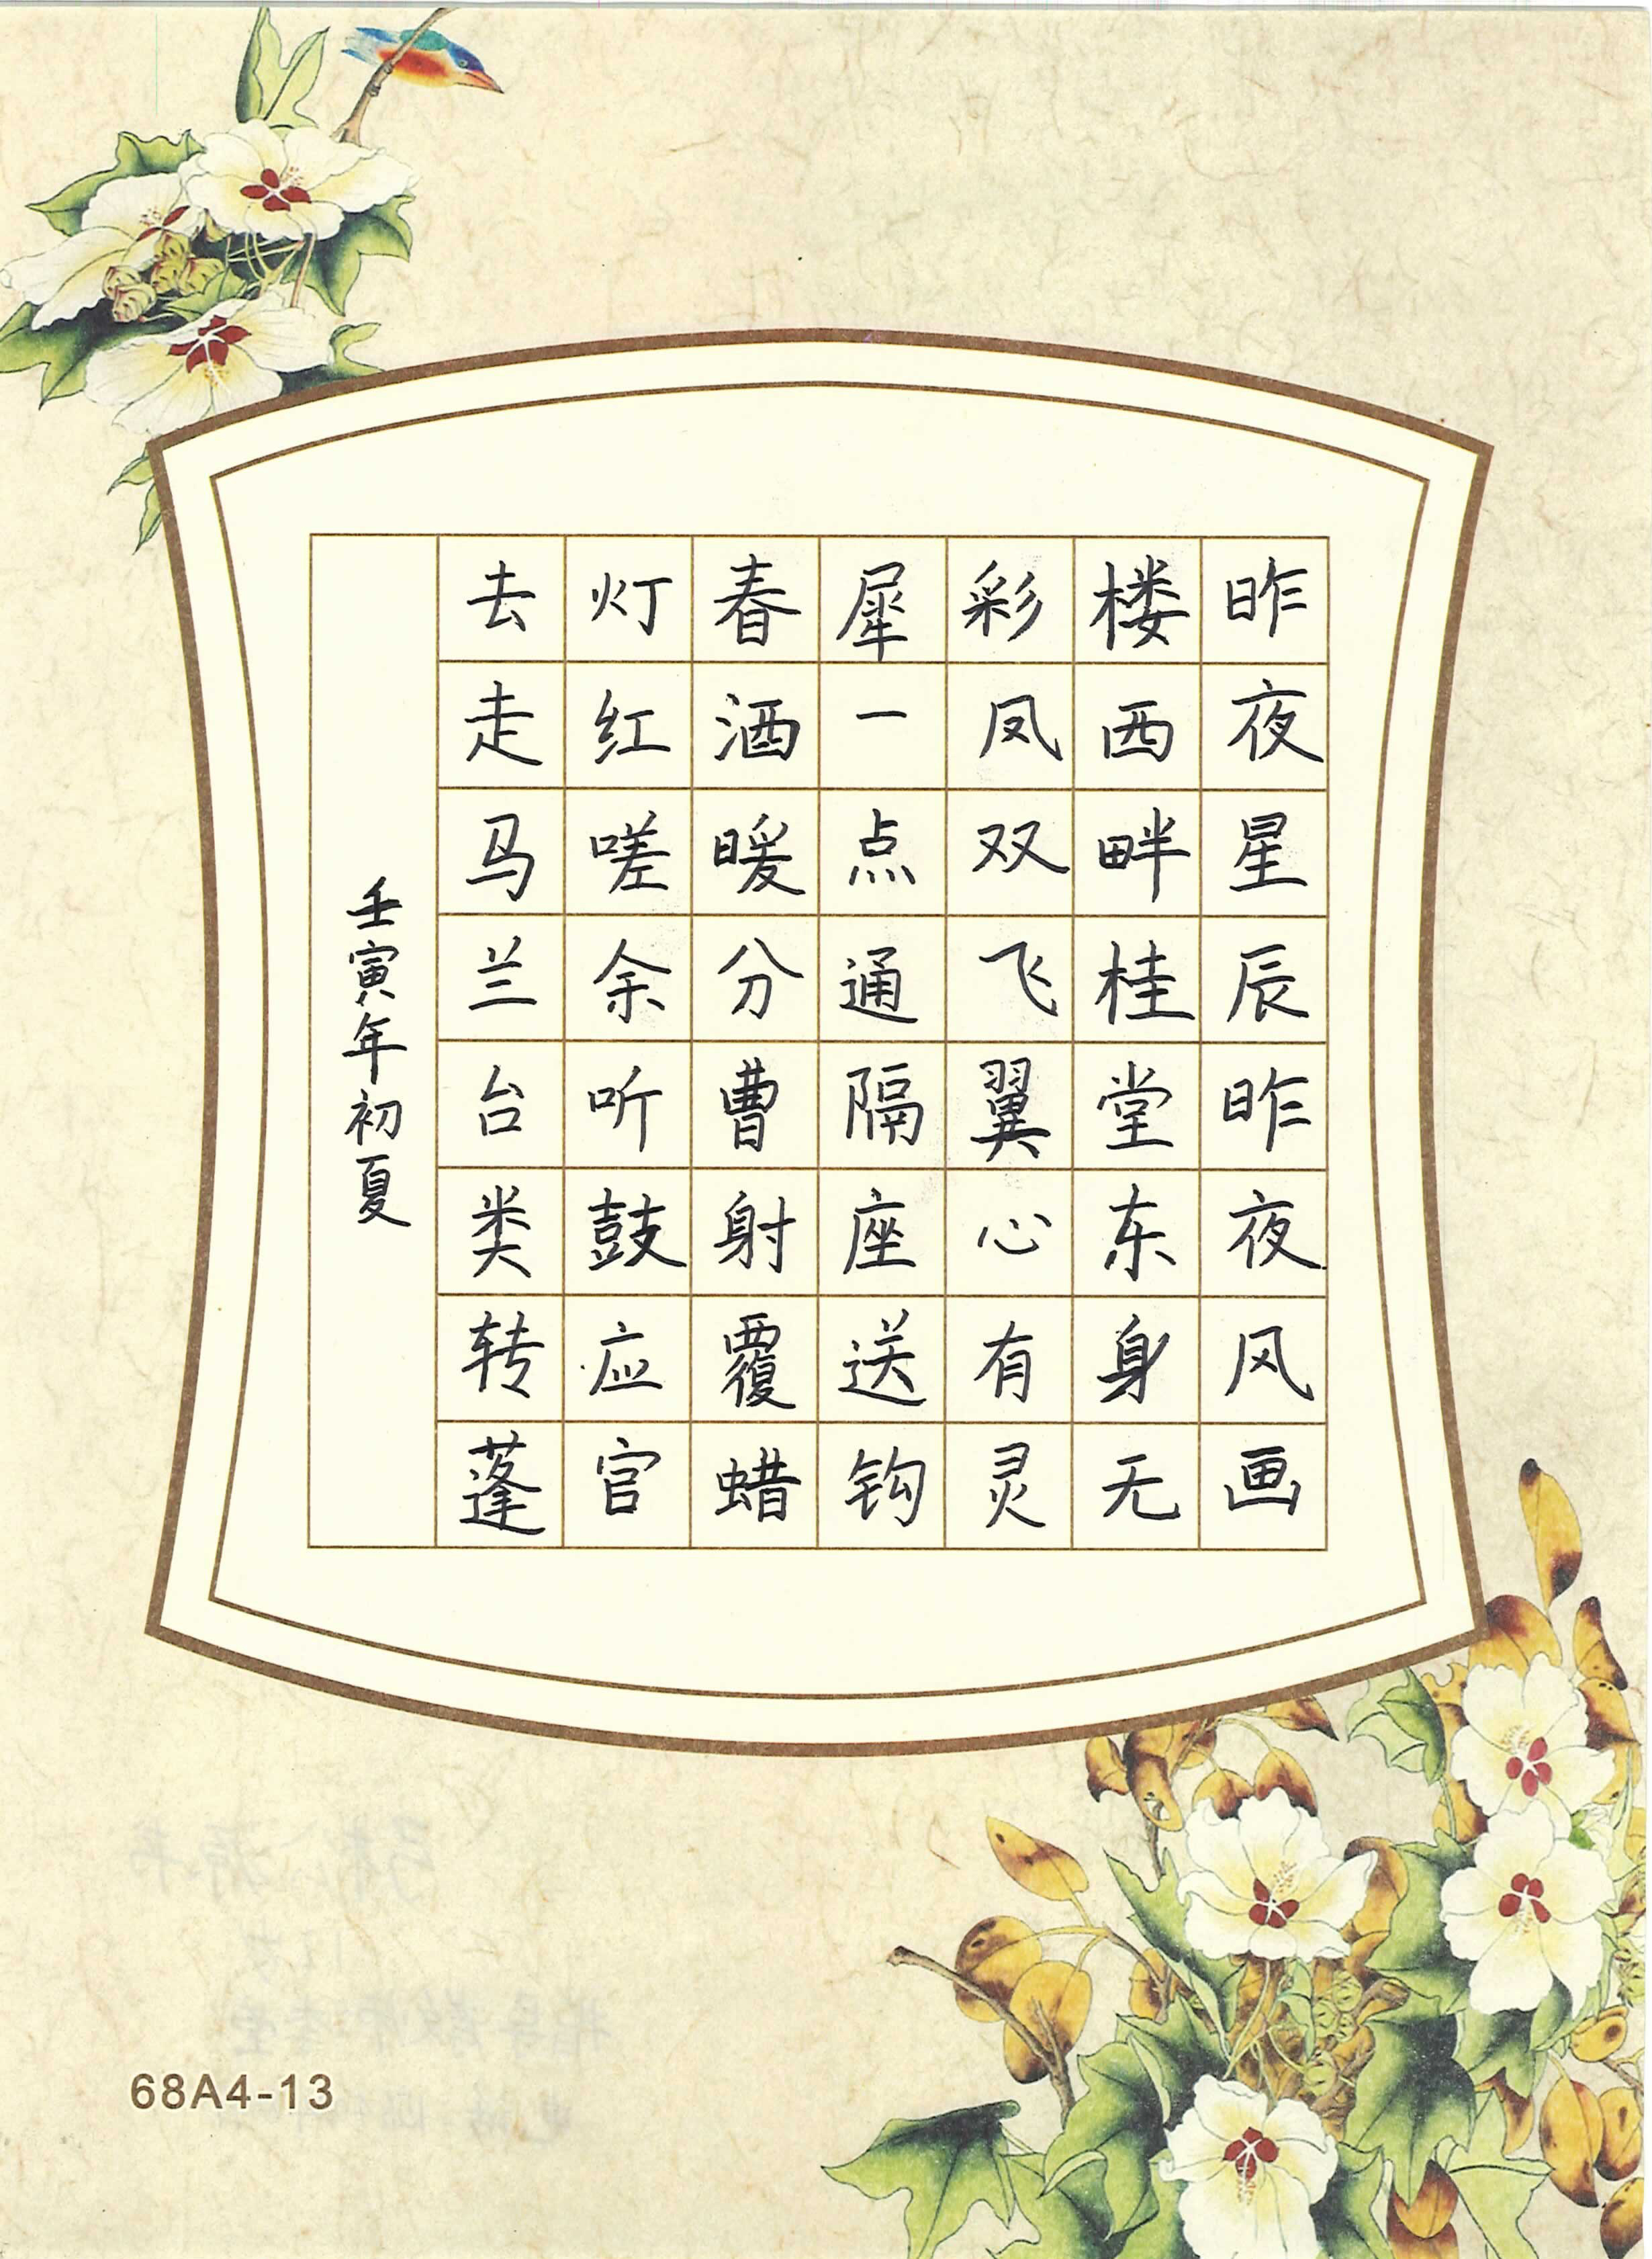 昨夜星辰昨夜风画
楼西畔桂堂东身无
彩凤双飞翼心有灵
犀一点通隔座送钩
春酒暖分曹射覆蜡
灯红嗟余听鼓应官
去走马兰台类转蓬
壬寅年初夏
68A4-13